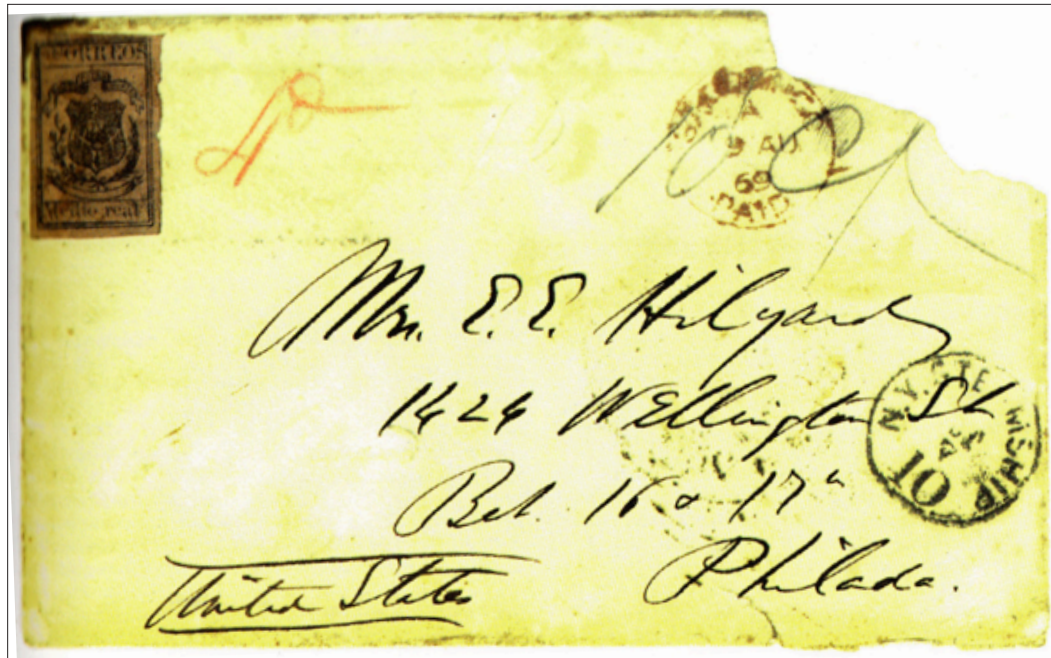 CORREOS
Medio real
4d
A
AU
69
PAID
Mrs. E. E. Hilyard
1424 Wellington St
Bet. 16 & 17"
Philada.
United States
N.Y. STEAMSHIP
10